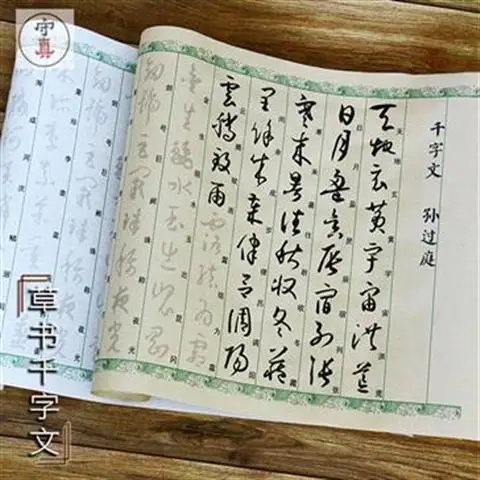 守真
千字文 孙过庭
天地玄黄宇宙洪荒
日月盈昃辰宿列张
寒来暑往秋收冬藏
闰余成岁律吕调阳
云腾致雨露结为霜
金生丽水玉出昆冈
剑号巨阙珠称夜光
草书千字文